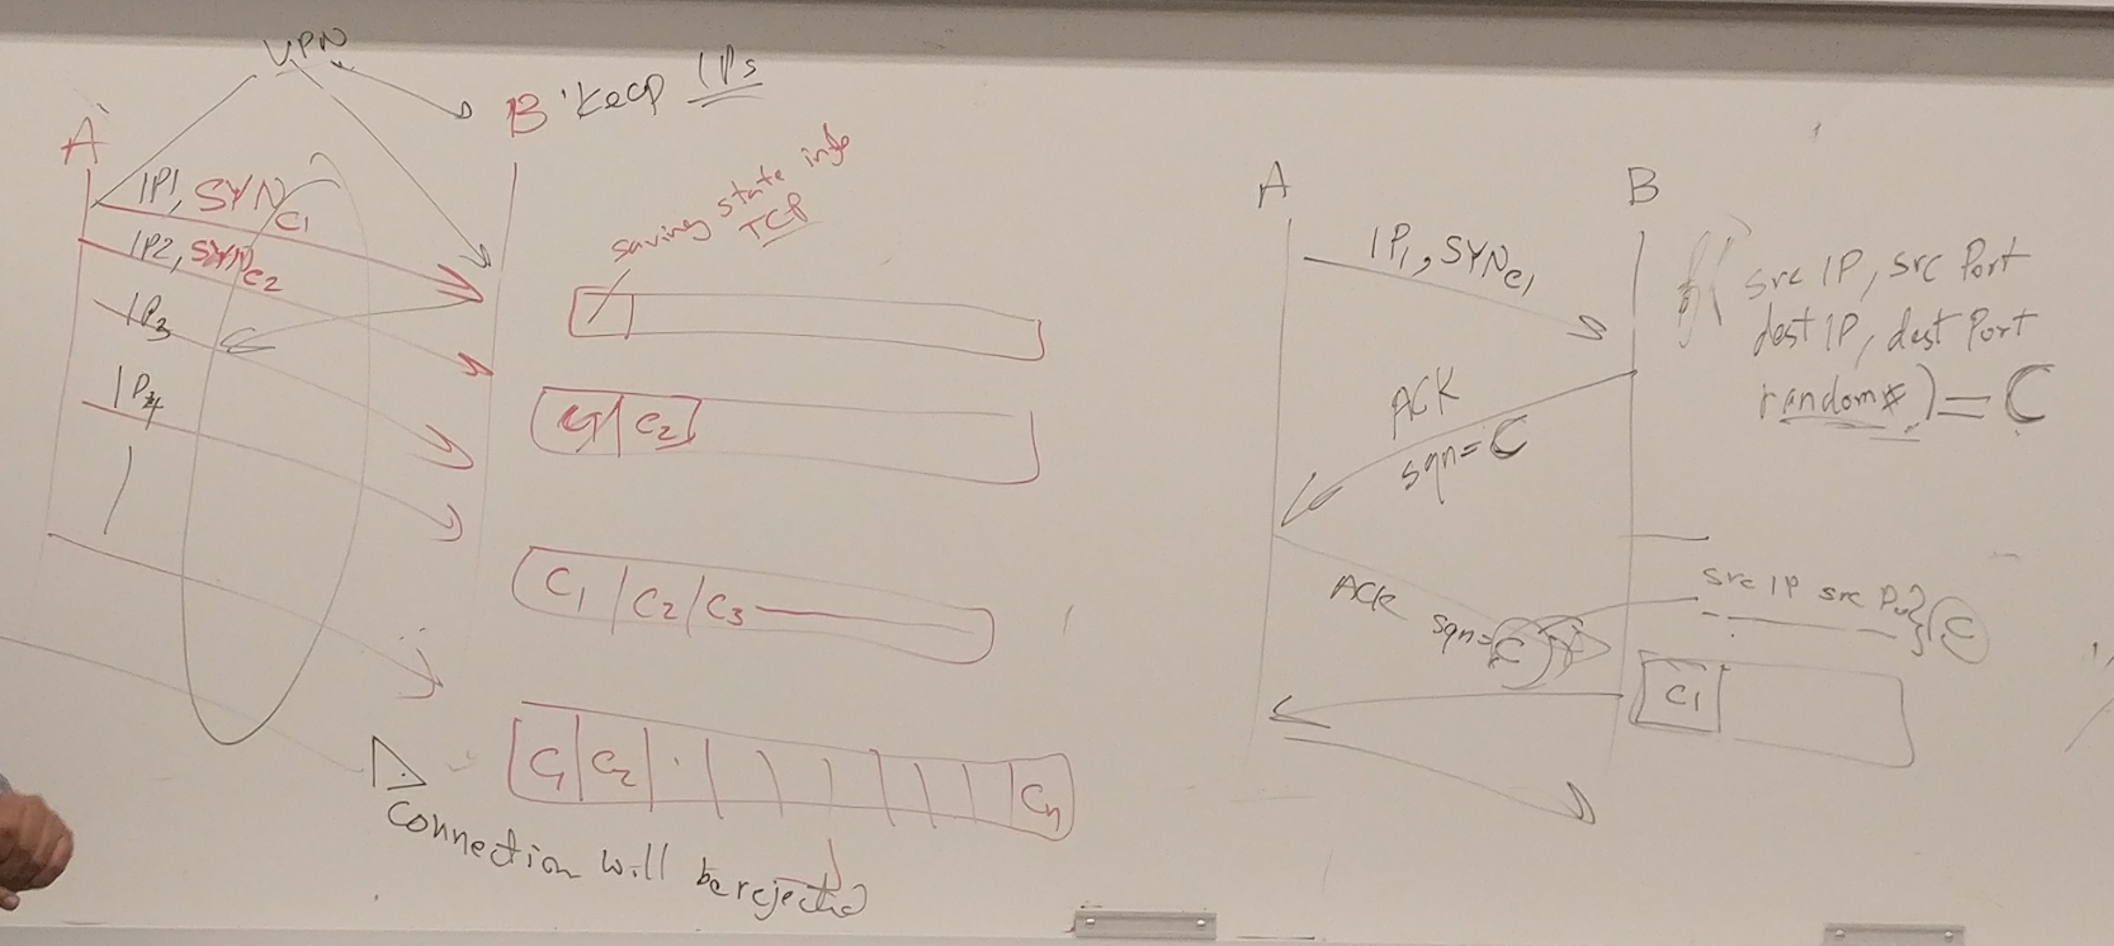 VPN
A
B Keep IPs
IP1, SYN C1
IP2, SYN C2
IP3
IP4
saving state info
TCP
C1 C2
C1 C2 C3
C1 C2 Cn
Connection will be rejected
A
B
IP1, SYN C1
f( src IP, src Port
dest IP, dest Port
random# ) = C
ACK
sqn = C
ACK sqn = C
src IP src
C
C1